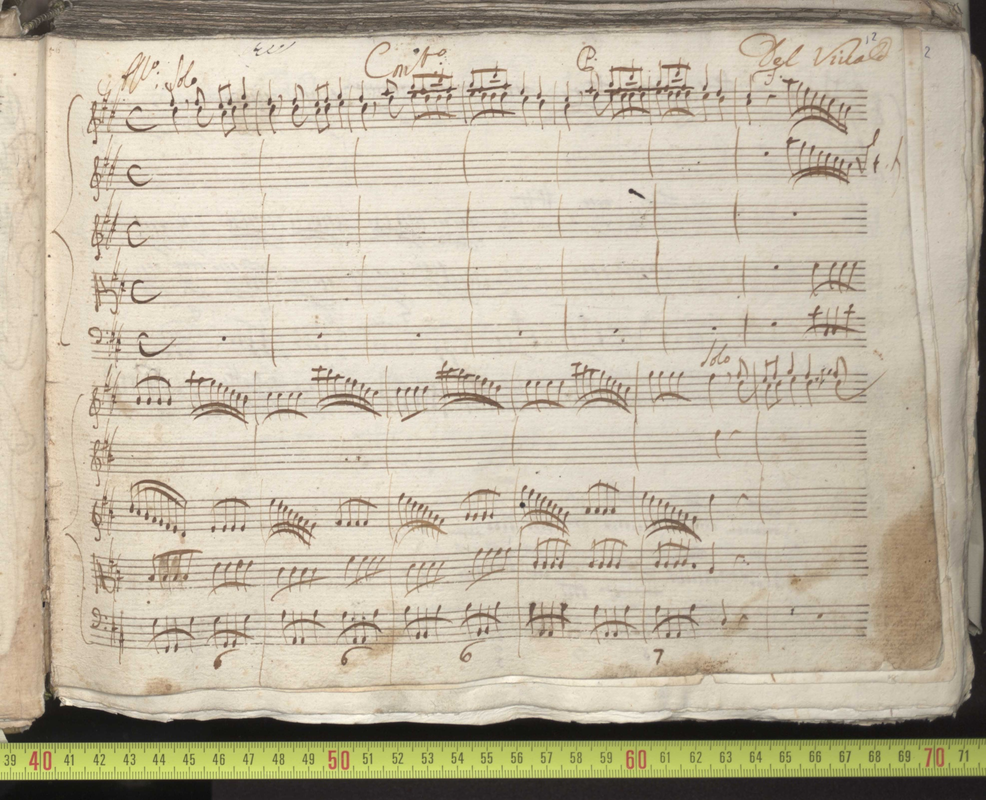 All.º Solo Cont.º P.º Del Viuald 12 2
C
C
C
C
C
Solo
6 6 6 7
39 40 41 42 43 44 45 46 47 48 49 50 51 52 53 54 55 56 57 58 59 60 61 62 63 64 65 66 67 68 69 70 71